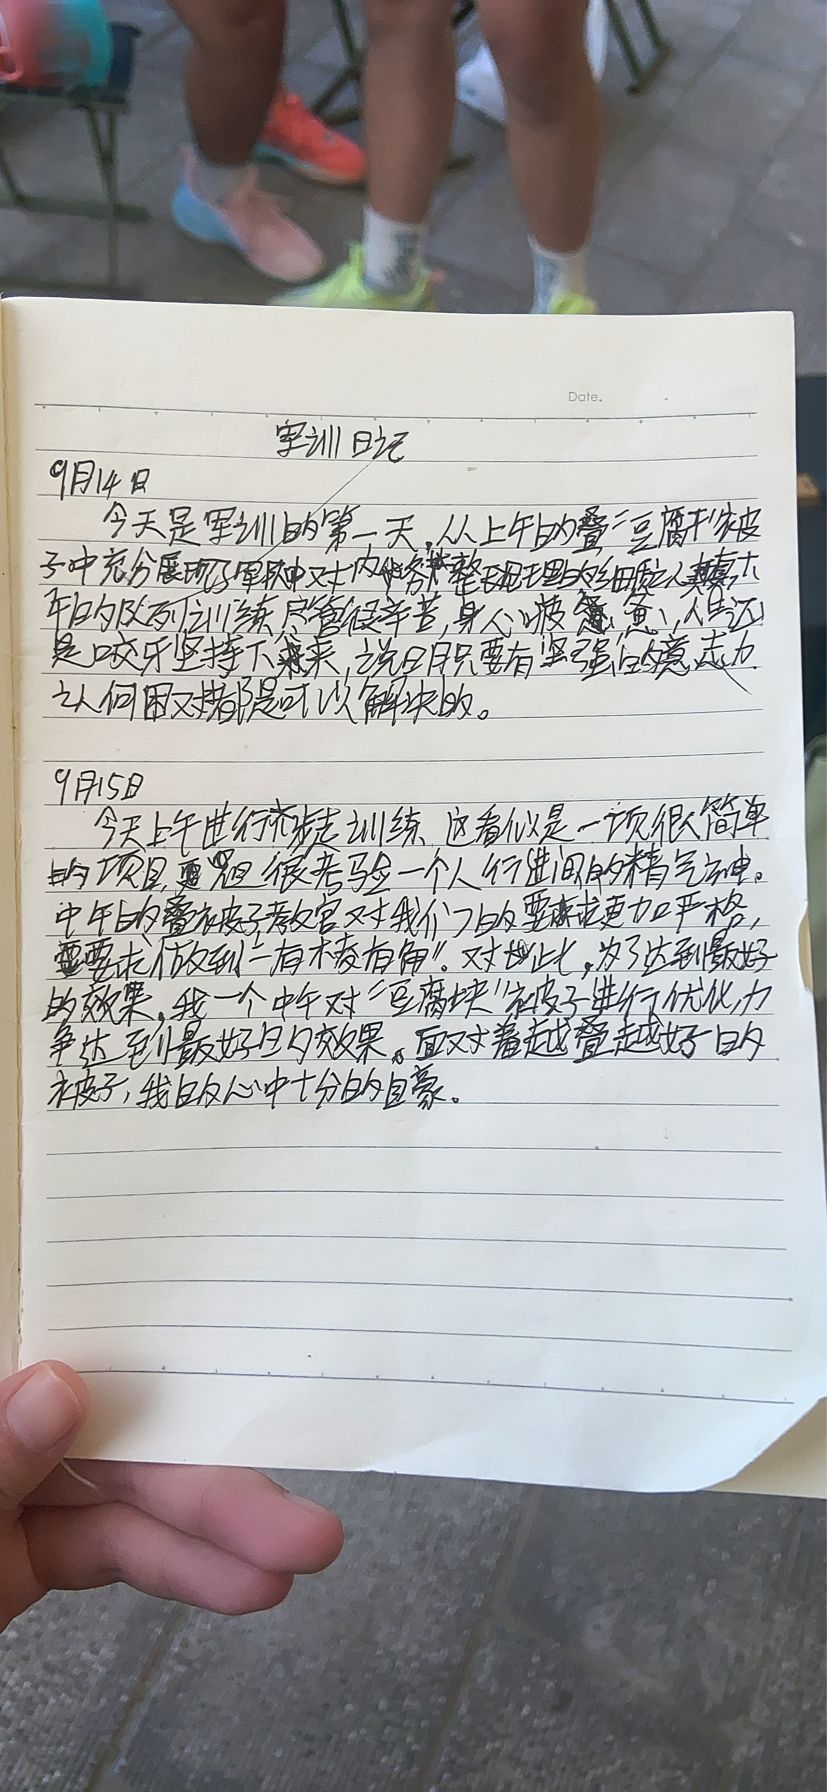 Date.
军训日记
9月14日
今天是军训的第一天,从上午的叠“豆腐块”被
子中充分展现了军队中对内务整理的细致认真,下
午的队列训练尽管很辛苦,身心疲惫,但还
是咬牙坚持下来,说明只要有坚强的意志力
任何困难都是可以解决的。
9月15日
今天上午进行齐步走训练,这看似是一项很简单
的项目,但很考验一个人行进间的精气神。
中午的叠被子教官对我们的要求更加严格,
要求做到“有棱有角”。对此,为了达到最好
的效果,我一个中午对“豆腐块”被子进行优化,力
争达到最好的效果。面对着越叠越好的
被子,我的心中十分的自豪。